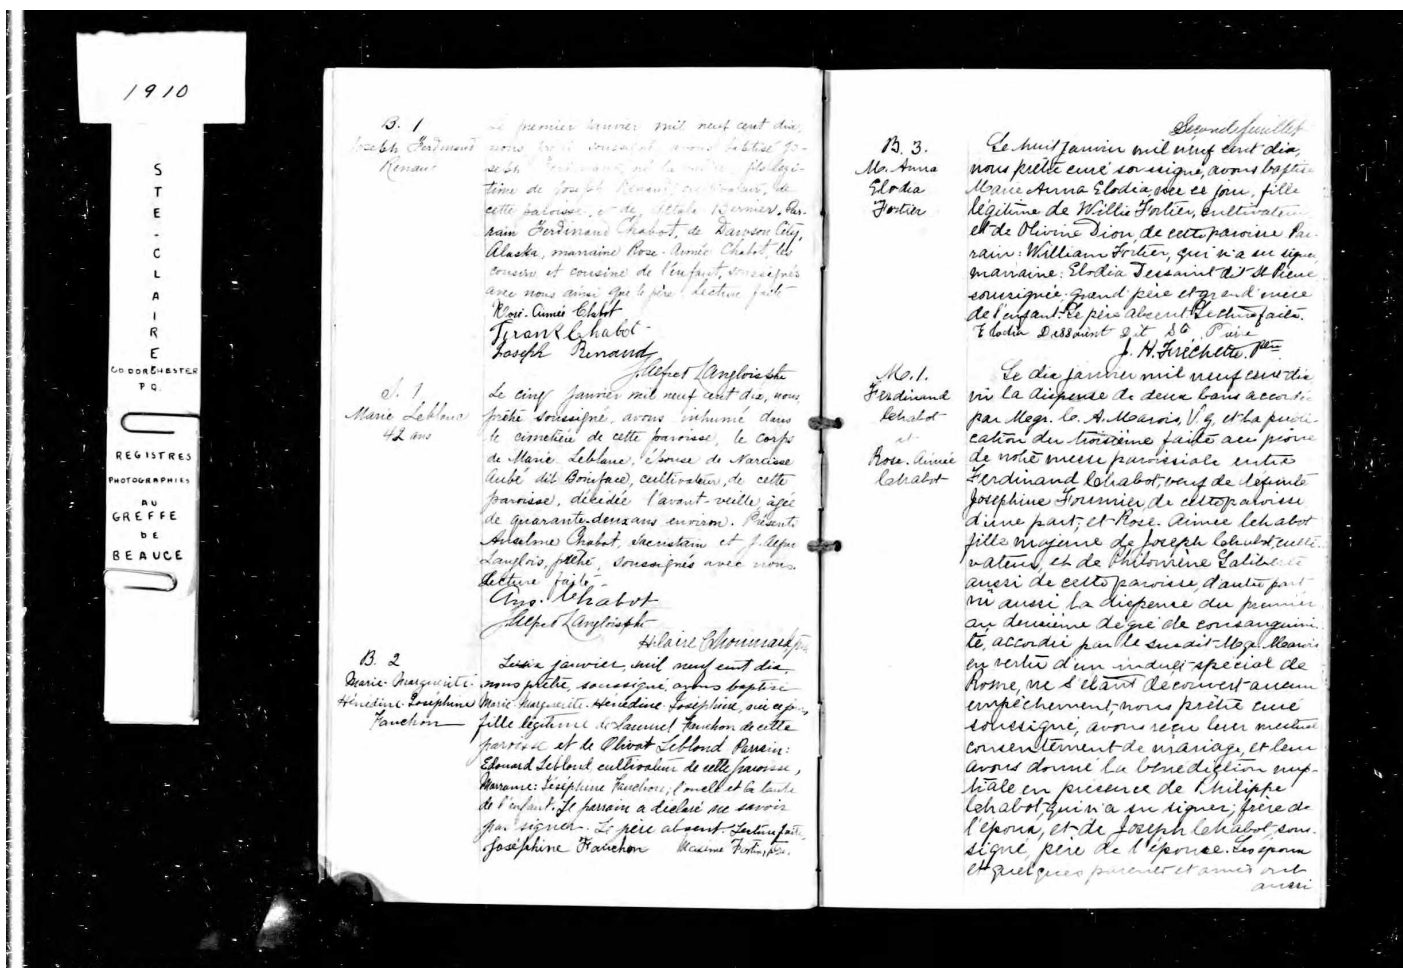 1910
STE-CLAIRE
CO DORCHESTER
P.Q.
REGISTRES
PHOTOGRAPHIES
AU
GREFFE
DE
BEAUCE
B. 1
Joseph Ferdinand
Renaud
Le premier janvier mil neuf cent dix,
nous prêtre soussigné, avons baptisé Jo-
seph Ferdinand, né la veille, fils légi-
time de Joseph Renaud, cultivateur, de
cette paroisse, et de Bernier. Par-
rain Ferdinand Chabot, de Dawson City,
Alaska, marraine Rose-Aimée Chabot, les
cousin et cousine de l'enfant, soussignés
avec nous ainsi que le père. Lecture faite
Rose-Aimée Chabot
Frank Chabot
Joseph Renaud
J. Alfred Langlois ptre
S. 1
Marie Leblanc
42 ans
Le cinq janvier mil neuf cent dix, nous,
prêtre soussigné, avons inhumé dans
le cimetière de cette paroisse, le corps
de Marie Leblanc, épouse de Narcisse
Aubé dit Boniface, cultivateur, de cette
paroisse, décédée l'avant-veille, âgée
de quarante-deux ans environ. Présents
Anselme Chabot, sacristain et J. Alfred
Langlois, prêtre, soussignés avec nous.
Lecture faite.
Ans. Chabot
J. Alfred Langlois ptre
Hilaire Chouinard ptre
B. 2
Marie-Marguerite-
Hénédine-Joséphine
Fauchon
Le six janvier, mil neuf cent dix,
nous prêtre, soussigné, avons baptisé
Marie-Marguerite-Hénédine-Joséphine, née ce jour,
fille légitime de Fauchon de cette
paroisse et de Leblond Parrain:
Edouard Leblond, cultivateur de cette paroisse,
Marraine: Joséphine Fauchon; l'oncle et la tante
de l'enfant. Le parrain a déclaré ne savoir
pas signer. Le père absent. Lecture faite,
Joséphine Fauchon Maxime Fortin, ptre.
Second feuillet
B. 3.
M. Anna
Elodia
Fortier
Le huit janvier mil neuf cent dix,
nous prêtre curé soussigné, avons baptisé
Marie Anna Elodia, née ce jour, fille
légitime de Willie Fortier, cultivateur
et de Olivine Dion de cette paroisse Par-
rain: William Fortier, qui n'a su signer,
marraine: Elodia Dessaint dit St Pierre
soussignée, grand'père et grand'mère
de l'enfant. Le père absent. Lecture faite.
Elodia Dessaint dit St. Pierre
J. H. Fréchette, Ptre
M. 1.
Ferdinand
Chabot
et
Rose-Aimée
Chabot
Le dix janvier mil neuf cent dix
vu la dispense de deux bans accordée
par Megr. C. A. Marois, V. g. et la publi-
cation du troisième faite au prône
de notre messe paroissiale entre
Ferdinand Chabot, veuf de défunte
Josephine Fournier, de cette paroisse
d'une part; et Rose-Aimée Chabot
fille majeure de Joseph Chabot, culti-
vateur, et de Philomène Laliberté
aussi de cette paroisse, d'autre part,
vu aussi la dispense du premier
au deuxième degré de consanguini-
té, accordée par le susdit Mgr. Marois
en vertu d'un indult spécial de
Rome, ne s'étant découvert aucun
empêchement; nous prêtre curé
soussigné, avons reçu leur mutuel
consentement de mariage, et leur
avons donné la bénédiction nup-
tiale en présence de Philippe
Chabot, qui n'a su signer, frère de
l'époux, et de Joseph Chabot, sous-
signé, père de l'épouse. Les époux
et quelques parents et amis ont
aussi